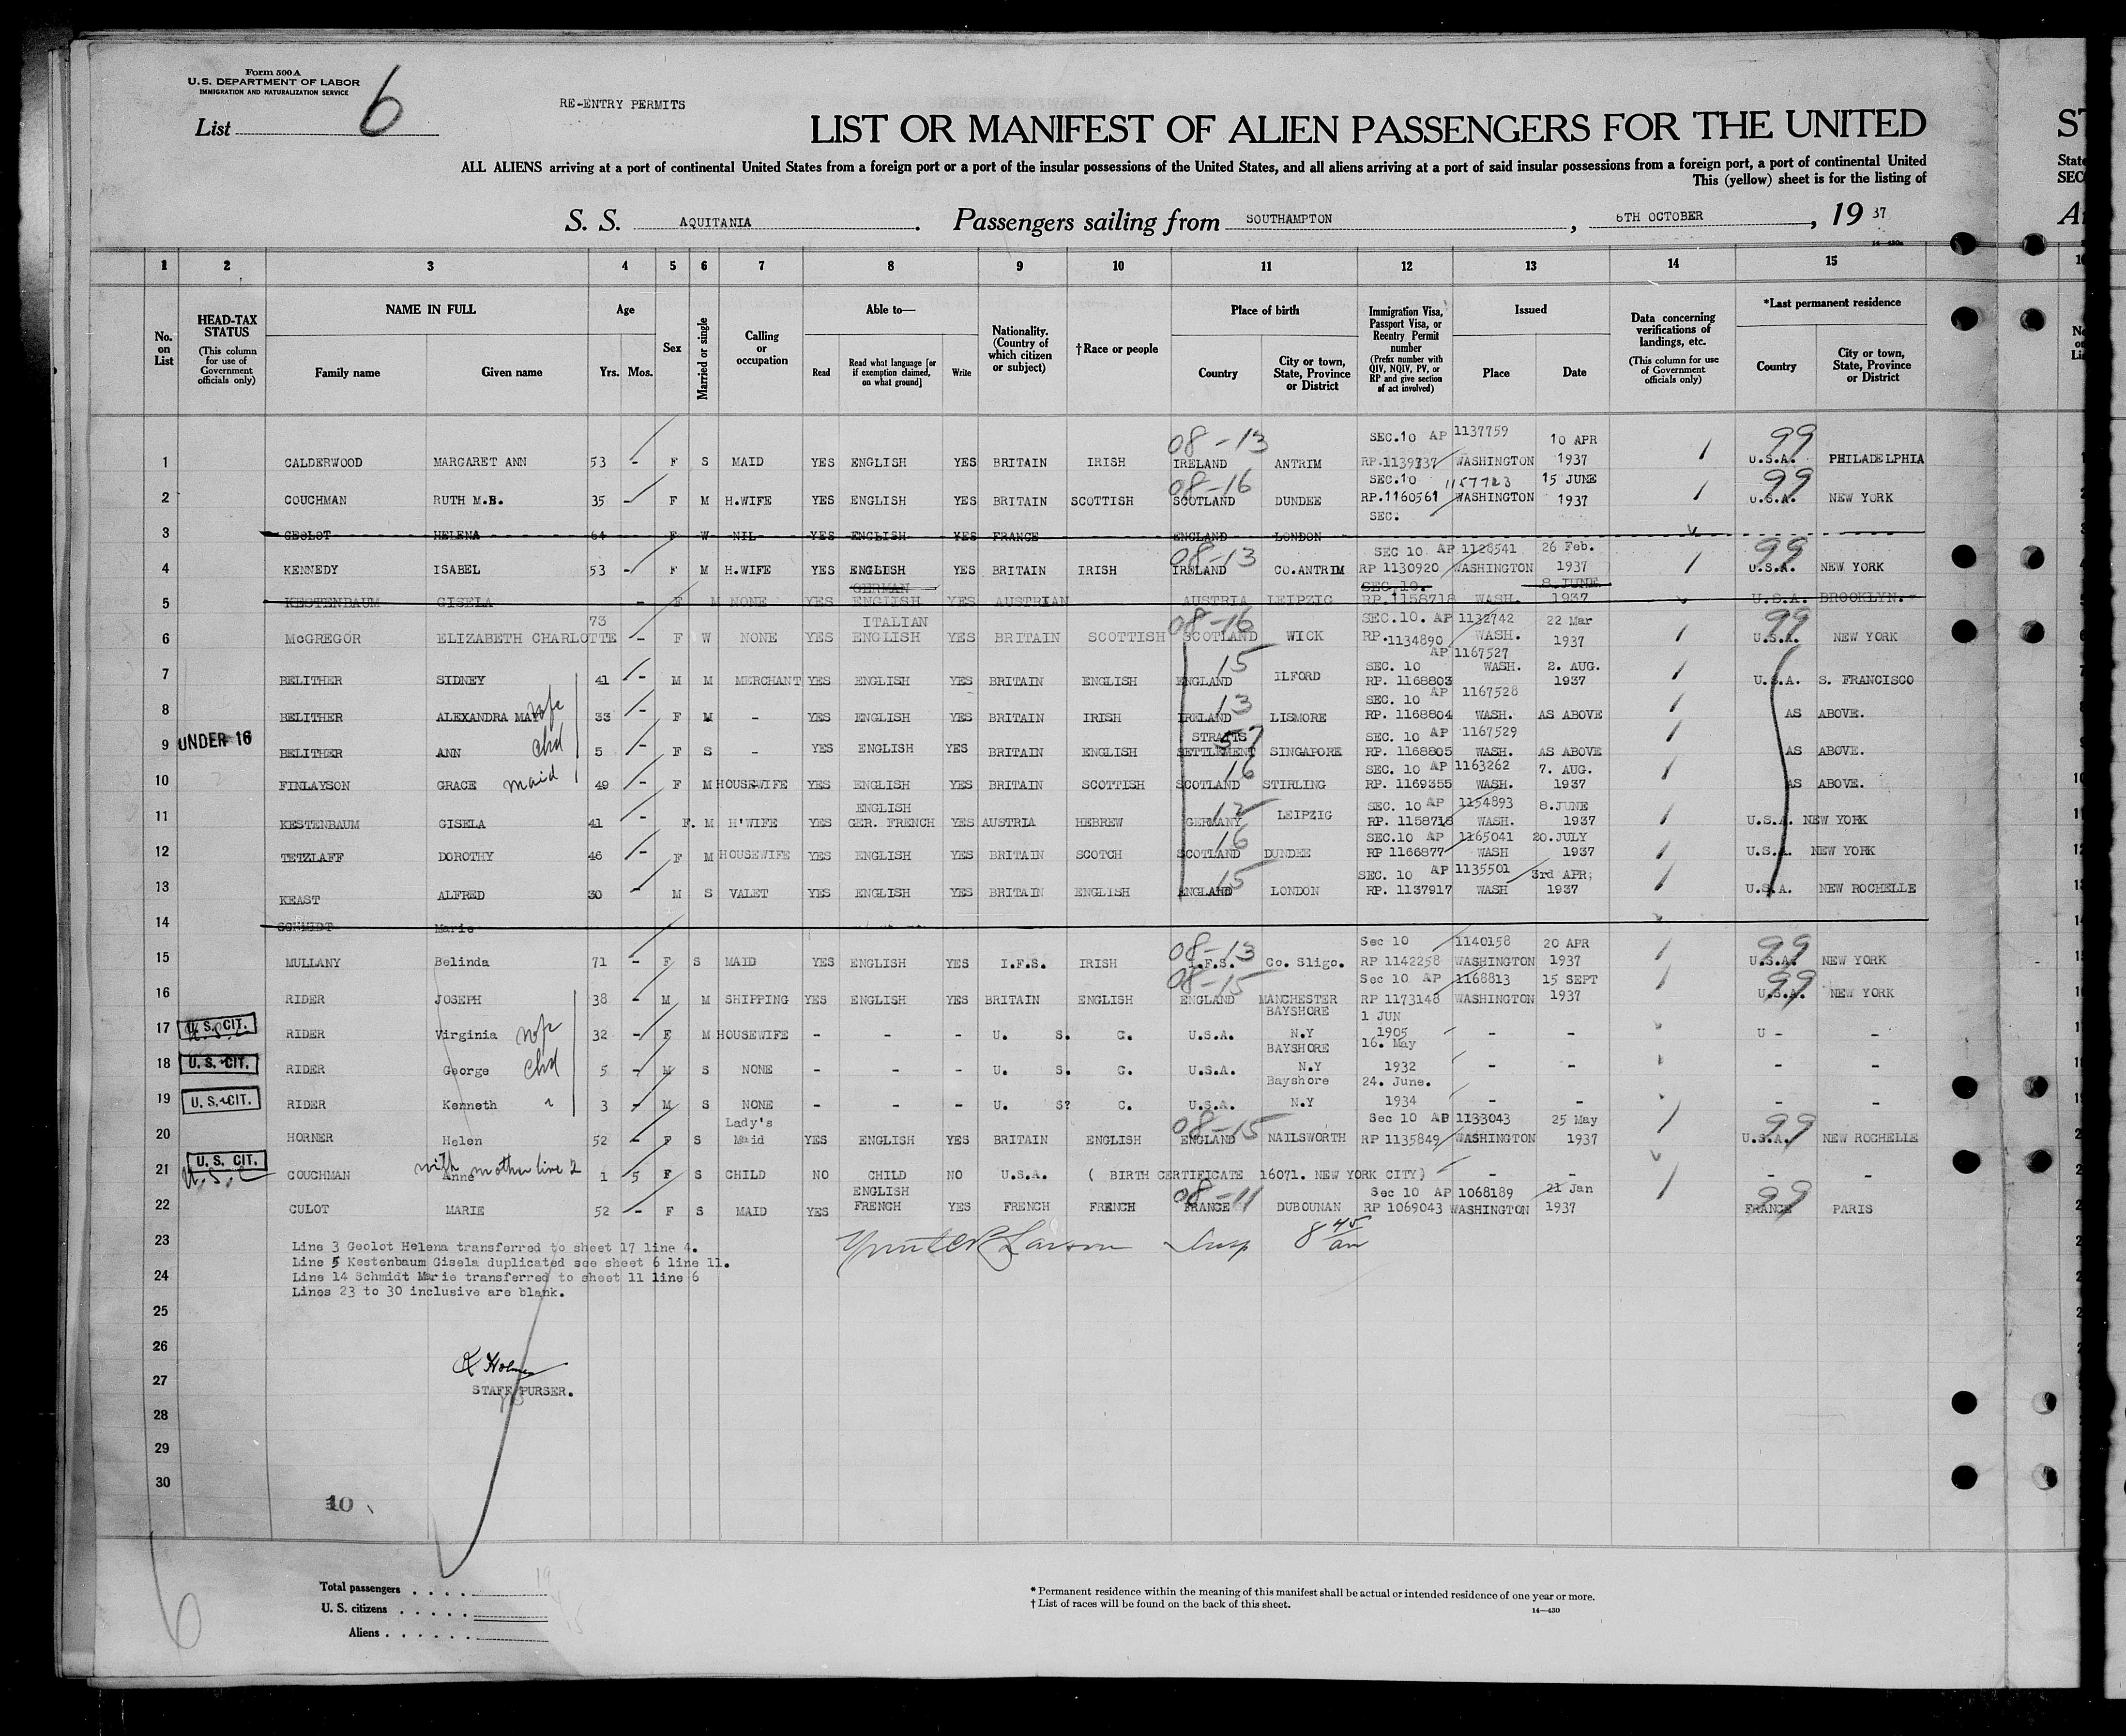 Form 500 A
U.S. DEPARTMENT OF LABOR
IMMIGRATION AND NATURALIZATION SERVICE
List 6
RE-ENTRY PERMITS
LIST OR MANIFEST OF ALIEN PASSENGERS FOR THE UNITED
ALL ALIENS arriving at a port of continental United States from a foreign port or a port of the insular possessions of the United States, and all aliens arriving at a port of said insular possessions from a foreign port, a port of continental United
This (yellow) sheet is for the listing of
S. S. AQUITANIA. Passengers sailing from SOUTHAMPTON, 6TH OCTOBER, 19 37
1 2 3 4 5 6 7 8 9 10 11 12 13 14 15
No. on List
HEAD-TAX STATUS (This column for use of Government officials only)
NAME IN FULL Family name Given name
Age Yrs. Mos.
Sex
Married or single
Calling or occupation
Able to— Read Read what language [or if exemption claimed, on what ground] Write
Nationality. (Country of which citizen or subject)
†Race or people
Place of birth Country City or town, State, Province or District
Immigration Visa, Passport Visa, or Reentry Permit number (Prefix number with QIV, NQIV, PV, or RP and give section of act involved)
Issued Place Date
Data concerning verifications of landings, etc. (This column for use of Government officials only)
*Last permanent residence Country City or town, State, Province or District
08-13 SEC.10 AP 1137759 10 APR 99
1 CALDERWOOD MARGARET ANN 53 - F S MAID YES ENGLISH YES BRITAIN IRISH IRELAND ANTRIM RP.1139337 WASHINGTON 1937 U.S.A. PHILADELPHIA
08-16 SEC.10 1157723 15 JUNE 99
2 COUCHMAN RUTH M.B. 35 - F M H.WIFE YES ENGLISH YES BRITAIN SCOTTISH SCOTLAND DUNDEE RP.1160561 WASHINGTON 1937 U.S.A. NEW YORK
SEC.
3 GEOLOT HELENA 64 F W NIL YES ENGLISH YES FRANCE ENGLAND LONDON
08-13 SEC 10 AP 1128541 26 Feb. 99
4 KENNEDY ISABEL 53 - F M H.WIFE YES ENGLISH YES BRITAIN IRISH IRELAND CO.ANTRIM RP 1130920 WASHINGTON 1937 U.S.A. NEW YORK
GERMAN SEC.10. 8 JUNE
5 KESTENBAUM GISELA - F M NONE YES ENGLISH YES AUSTRIAN AUSTRIA LEIPZIG RP.1158718 WASH. 1937 U.S.A. BROOKLYN.
73 ITALIAN 08-16 SEC.10. AP 1132742 22 Mar 99
6 McGREGOR ELIZABETH CHARLOTTE - F W NONE YES ENGLISH YES BRITAIN SCOTTISH SCOTLAND WICK RP.1134890 WASH. 1937 U.S.A. NEW YORK
AP 1167527
15 SEC. 10 WASH. 2. AUG.
7 BELITHER SIDNEY 41 - M M MERCHANT YES ENGLISH YES BRITAIN ENGLISH ENGLAND ILFORD RP. 1168803 1937 U.S.A. S. FRANCISCO
13 SEC. 10 AP 1167528
8 BELITHER ALEXANDRA MAY wfe 33 - F M - YES ENGLISH YES BRITAIN IRISH IRELAND LISMORE RP. 1168804 WASH. AS ABOVE AS ABOVE.
UNDER 16 chd STRAITS 57 SEC. 10 AP 1167529
9 BELITHER ANN 5 - F S - YES ENGLISH YES BRITAIN ENGLISH SETTLEMENT SINGAPORE RP. 1168805 WASH. AS ABOVE AS ABOVE.
16 SEC. 10 AP 1163262 7. AUG.
10 FINLAYSON GRACE maid 49 - F M HOUSEWIFE YES ENGLISH YES BRITAIN SCOTTISH SCOTLAND STIRLING RP. 1169355 WASH. 1937 AS ABOVE.
ENGLISH 12 SEC. 10 AP 1154893 8.JUNE
11 KESTENBAUM GISELA 41 - F. M H'WIFE YES GER. FRENCH YES AUSTRIA HEBREW GERMANY LEIPZIG RP. 1158718 WASH. 1937 U.S.A. NEW YORK
16 SEC.10 AP 1165041 20.JULY
12 TETZLAFF DOROTHY 46 - F M HOUSEWIFE YES ENGLISH YES BRITAIN SCOTCH SCOTLAND DUNDEE RP 1166877 WASH 1937 U.S.A. NEW YORK
15 SEC. 10 AP 1135501 3rd APR;
13 KEAST ALFRED 30 - M S VALET YES ENGLISH YES BRITAIN ENGLISH ENGLAND LONDON RP. 1137917 WASH 1937 U.S.A. NEW ROCHELLE
14 SCHMIDT Marie
08-13 Sec 10 1140158 20 APR 99
15 MULLANY Belinda 71 - F S MAID YES ENGLISH YES I.F.S. IRISH I.F.S. Co. Sligo. RP 1142258 WASHINGTON 1937 U.S.A. NEW YORK
08-15 Sec 10 AP 1168813 15 SEPT 99
16 RIDER JOSEPH 38 - M M SHIPPING YES ENGLISH YES BRITAIN ENGLISH ENGLAND MANCHESTER RP 1173148 WASHINGTON 1937 U.S.A. NEW YORK
U.S. CIT. BAYSHORE 1 JUN
17 RIDER Virginia wfe 32 - F M HOUSEWIFE - - - U. S. C. U.S.A. N.Y 1905 - - U - -
U.S. CIT. BAYSHORE 16. May
18 RIDER George chd 5 - M S NONE - - - U. S. C. U.S.A. N.Y 1932 - - - -
U.S. CIT. Bayshore 24. June.
19 RIDER Kenneth " 3 - M S NONE - - - U. S? C. U.S.A. N.Y 1934 - - - -
Lady's 08-15 Sec 10 AP 1133043 25 May 99
20 HORNER Helen 52 - F S Maid YES ENGLISH YES BRITAIN ENGLISH ENGLAND NAILSWORTH RP 1135849 WASHINGTON 1937 U.S.A. NEW ROCHELLE
U.S. CIT. U.S.C with mother line 2
21 COUCHMAN Anne 1 5 F S CHILD NO CHILD NO U.S.A. ( BIRTH CERTIFICATE 16071. NEW YORK CITY) - - - -
ENGLISH 08-11 Sec 10 AP 1068189 21 Jan 99
22 CULOT MARIE 52 - F S MAID YES FRENCH YES FRENCH FRENCH FRANCE DUBOUNAN RP 1069043 WASHINGTON 1937 FRANCE PARIS
23 Line 3 Geolot Helena transferred to sheet 17 line 4. Larson Insp 8 45 am
Line 5 Kestenbaum Gisela duplicated see sheet 6 line 11.
24 Line 14 Schmidt Marie transferred to sheet 11 line 6
Lines 23 to 30 inclusive are blank.
25
26
Holmes
27 STAFF PURSER.
28
29
30
10
6
Total passengers . . . . 19
U. S. citizens . . . . .
Aliens . . . . . . 15
* Permanent residence within the meaning of this manifest shall be actual or intended residence of one year or more.
† List of races will be found on the back of this sheet.
14—430